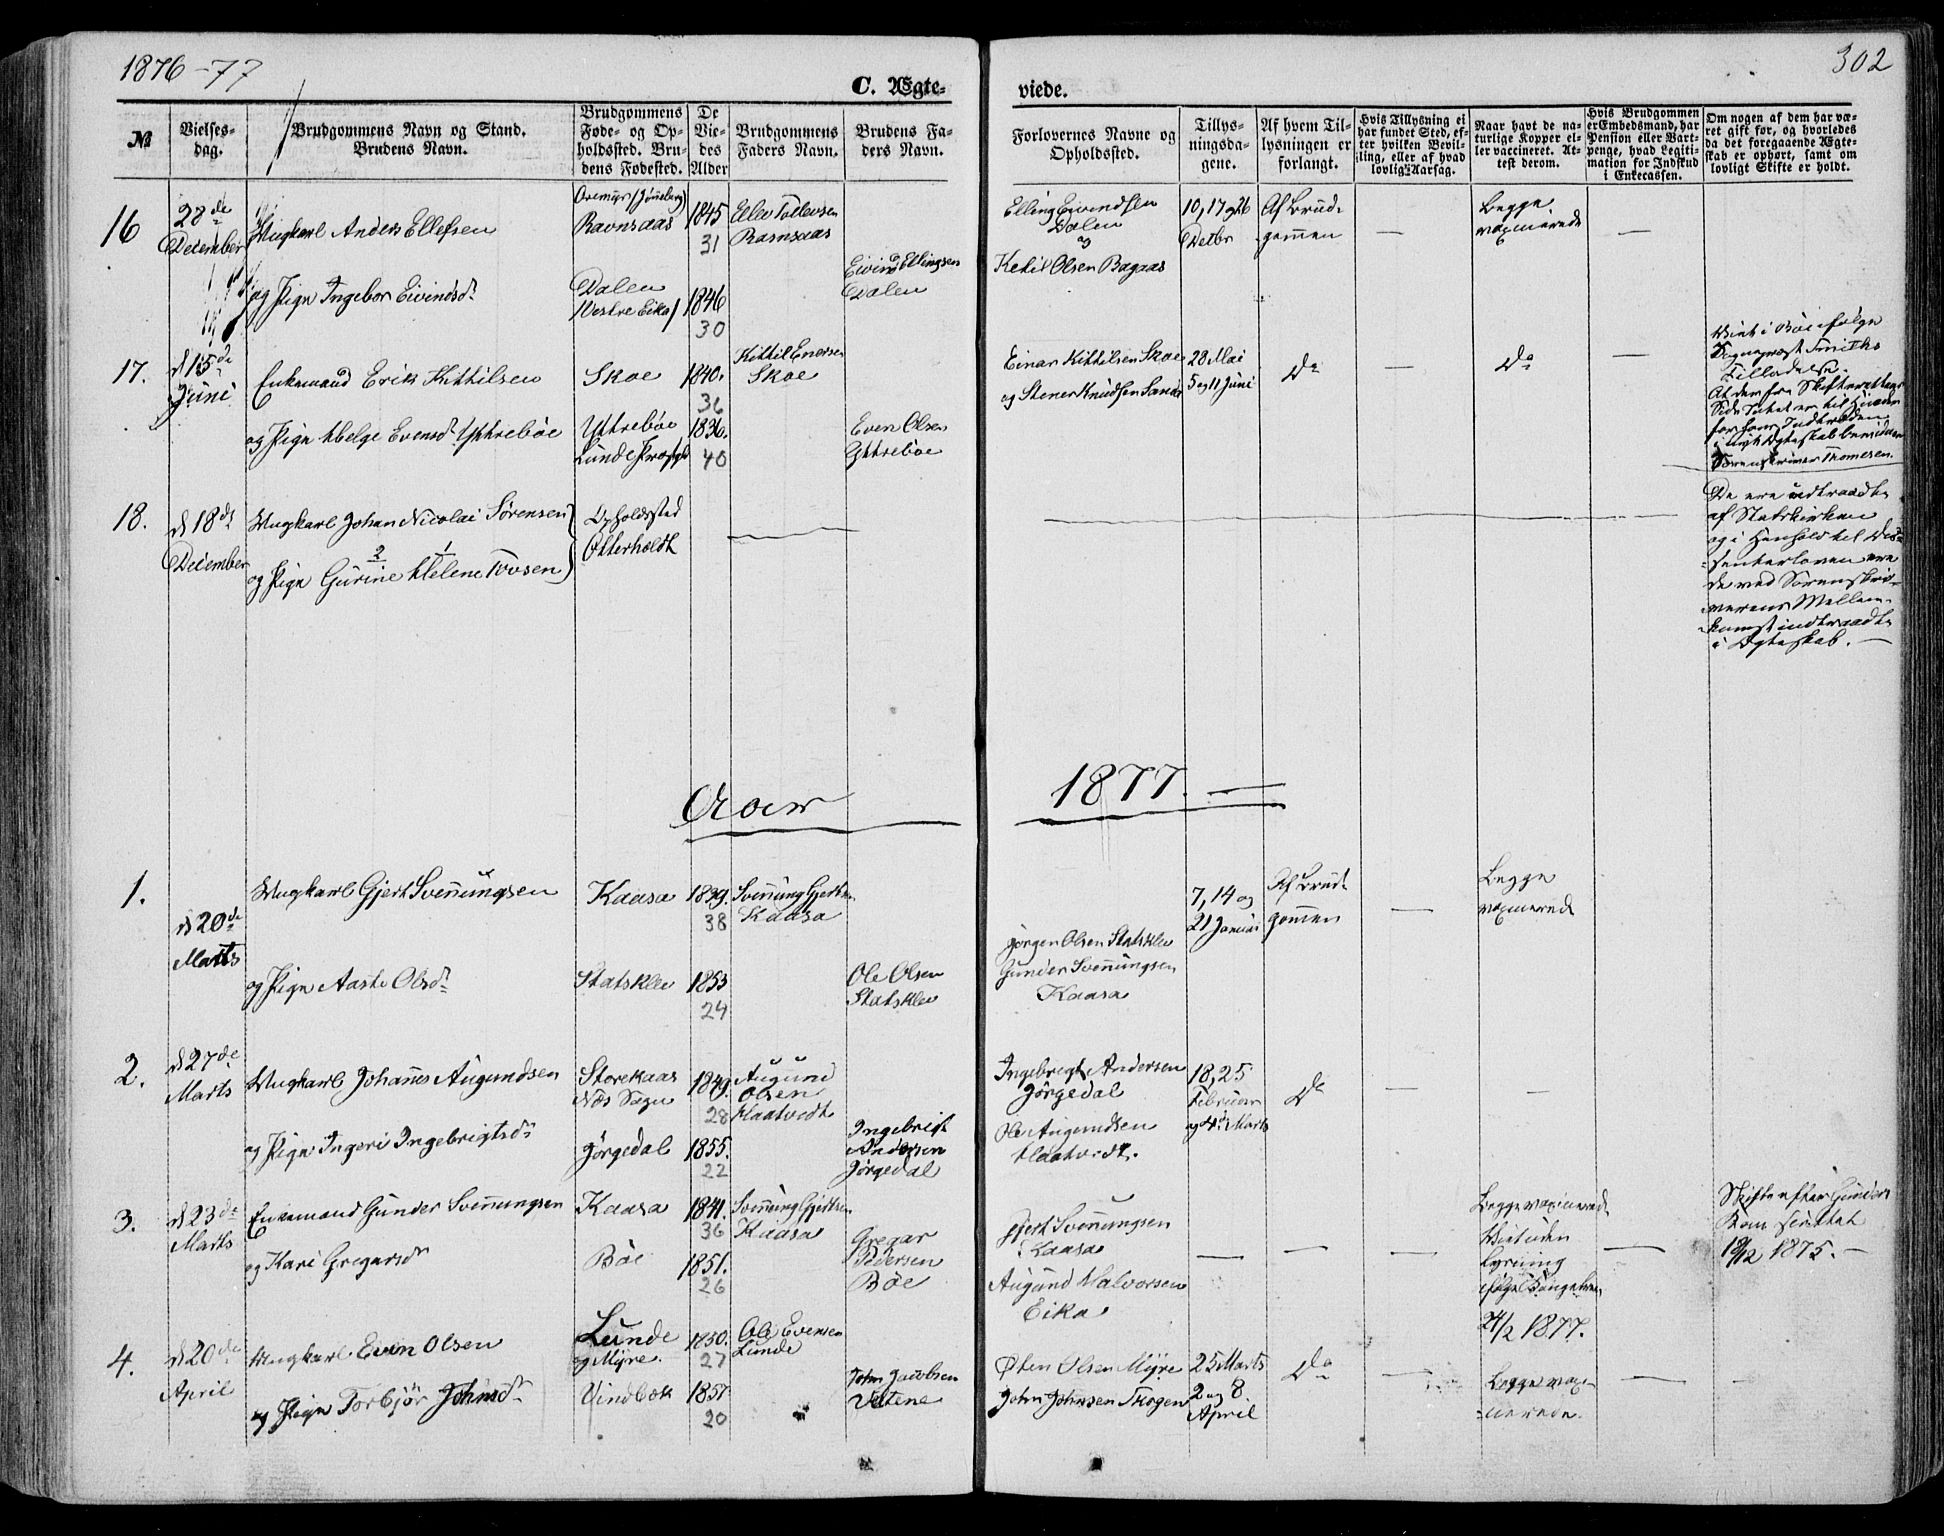 1876-77
302
C. Ægte-
viede.
№
Vielses-
dag.
Brudgommens Navn og Stand.
Brudens Navn.
Brudgommens
Føde- og Op-
holdssted. Bru-
dens Fødested.
De
Vie-
des
Alder
Brudgommens
Faders Navn.
Brudens Fa-
ders Navn.
Forlovernes Navne og
Opholdssted.
Tillys-
ningsda-
gene.
Af hvem Til-
lysningen er
forlangt.
Hvis Tillysning ei
har fundet Sted, ef-
ter hvilken Bevil-
ling, eller af hvad
lovlig Aarsag.
Naar havt de na-
turlige Kopper el-
ler vaccineret. At-
test derom.
Hvis Brudgommen
er Embedsmand, har
Pension eller Vart-
penge, hvad Legiti-
mation for Indskud
i Enkecassen.
Om nogen af dem har væ-
ret gift før, og hvorledes
da det foregaaende Ægte-
skab er ophørt, samt om
lovligt Skifte er holdt.
16
28de
December
Ungkarl Anders Ellefsen
Ravnsaas
1845
31
Ellev Tollevsen
Ravnsaas
Elling Eivindsen
Dalen
og
Ketil Olsen Bagaas
10, 17 og 26
Decbr
Af Brud-
gommen
—
Begge
vaxinerede
—
og Pige Ingebor Eivindsdr
Dalen
/Vestre Eika/
1846
30
Eivind Ellingsen
Dalen
17.
d 15de
Juni
Enkemand Erik Kittilsen
Skoe
1840.
36
Kittil Enersen
Skoe
Einar Kittilsen Skoe
og Stener Knudsen Sande
28 Mai
5 og 11 Juni
Do
—
Do
—
Viet i Bøe ifølge
Sogneprest Smiths
Tilladelse.
At dem fra Skifterettens
Side Intet er til Hinder
for hans Indtræden
i nyt Ægteskab bevidner
Sorenskriver Thomesen.
og Pige Helge Evensdr Yttrebøe
Yttrebøe
Lunde Præstgd
1836.
40
Even Olsen
Yttrebøe
18.
d 18de
December
Ungkarl Johan Nicolai Sørensen
og Pige Gurine Helene Tovsen
2 1
Opholdssted
Otterholdt
De ere udtraadte
af Statskirken
og i Henhold til Dis-
senterloven ere
de ved Sorenskri-
verens Mellem-
komst indtraadte
i Ægteskab. —
Aar
1877. —
1.
d 20de
Marts
Ungkarl Gjert Svenungsen
Kaasa
1839.
38
Svenung Gjertsen
Kaasa
Jørgen Olsen Statsklev
Gunder Svenungsen
Kaasa
7, 14 og
21 Januar
Af Brud-
gommen
—
Begge
vaxinerede
og Pige Aaste Olsdr
Statsklev
1853
24
Ole Olsen
Statsklev
2.
d 27de
Marts
Ungkarl Johannes Augundsen
Storekaas
Næs Sogn
1849.
28
Augund
Olsen
Haatvedt
Ingebrigt Andersen
Jørgedal
Ole Augundsen
Haatvedt.
18, 25
Februar
og 4de Marts
Do
—
—
og Pige Ingeri Ingebrigtsdr
Jørgedal
1855.
22
Ingebrigt
Andersen
Jørgedal
3.
d 23de
Marts
Enkemand Gunder Svenungsen
Kaasa
1841.
36
Svenung Gjertsen
Kaasa
Gjert Svenungsen
Kaasa
Augund Halvorsen
Eika
—
—
—
Begge vaxinerede
Viet uden
Lysning
ifølge Kongebrev
21/2 1877.
—
Skifte efter Gunders
Kone sluttet
18/12 1875. —
og Kari Gregarsdr
Bøe
1851.
26
Gregar
Pedersen
Bøe
4.
d 20de
April
Ungkarl Even Olsen
Lunde
og Myre.
1850.
27
Ole Evensen
Lunde
Østen Olsen Myre
John Johnsen Skogen
25 Marts
2 og 8.
April
Do
—
Begge vaxi-
nerede.
—
—
og Pige Torbjør Johnsdr
Vindbæk
1857
20
John Jacobsen
Veltene